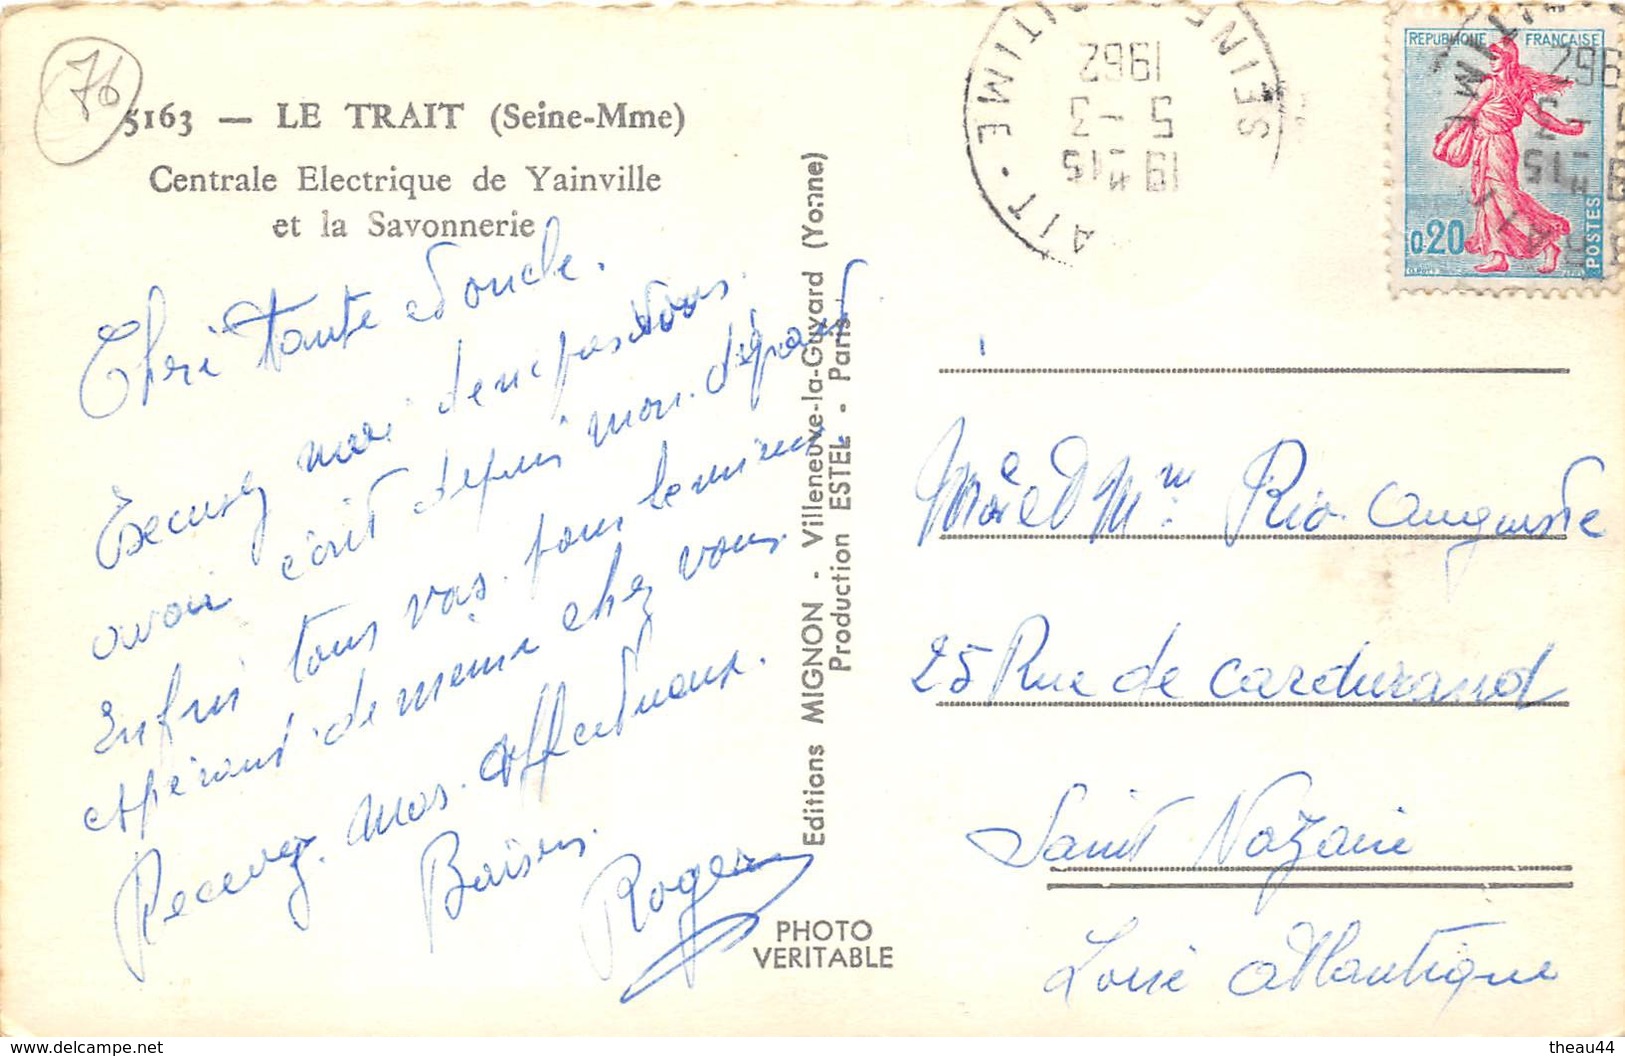 76
5163 — LE TRAIT (Seine-Mme)
Centrale Electrique de Yainville
et la Savonnerie
Cheri tante et oncle.
Excusez moi de ne pas vous
avoir écrit depuis mon départ
Enfin tous vas pour le mieux.
espérant de meme chez vous
Recevez mos affectueux.
Baisers.
Roger
Editions MIGNON - Villeneuve-la-Guyard (Yonne)
Production ESTEL - Paris
PHOTO
VERITABLE
AIT - SEINE MARITIME
19 H 15
5 - 3
1962
REPUBLIQUE FRANÇAISE
0.20
POSTES
Mr et Mme Rio Auguste
25 Rue de cardurand
Saint Nazaire
Loire atlantique
delcampe.net
theau44